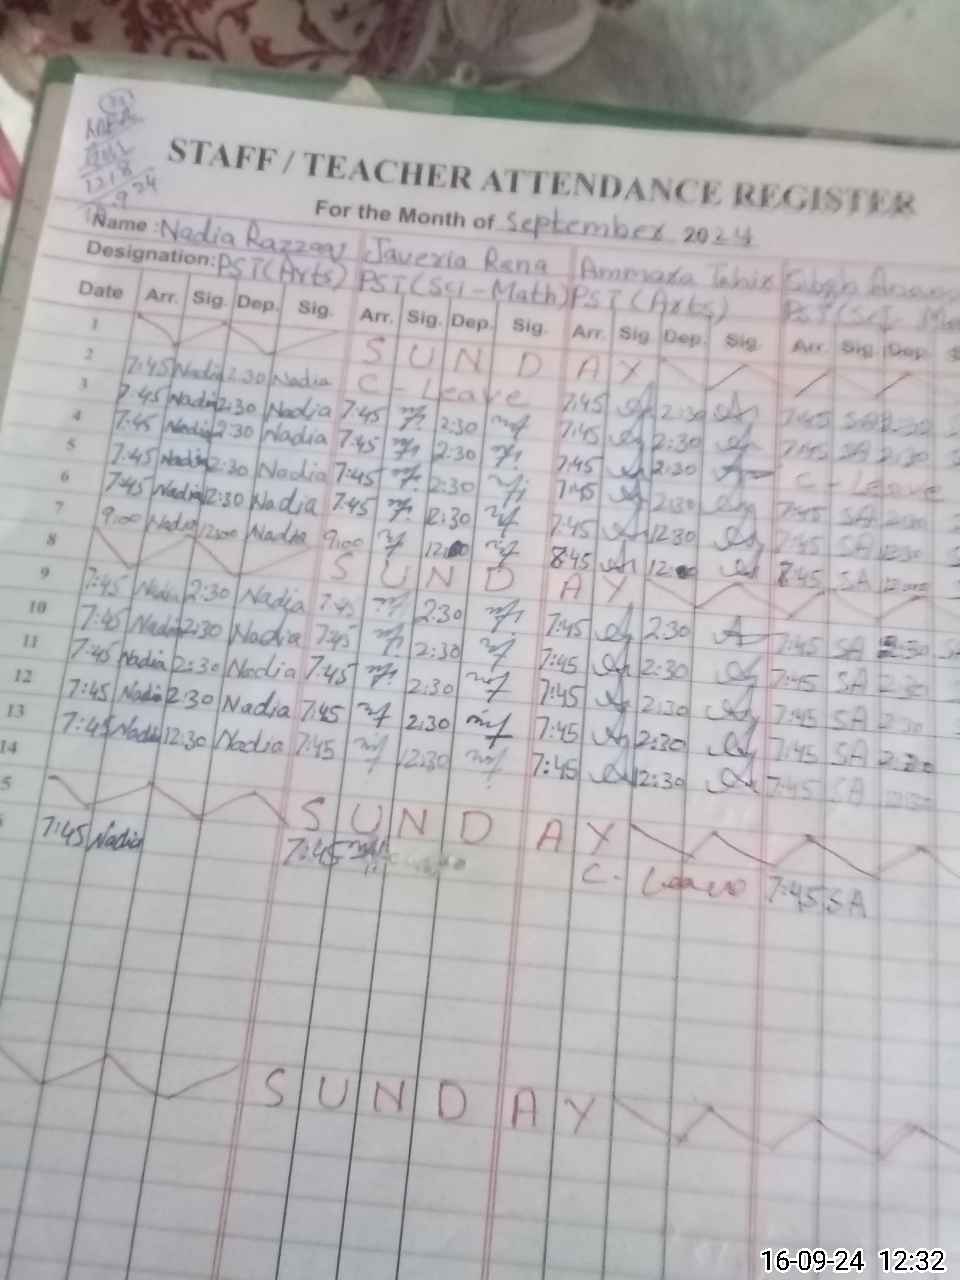 STAFF / TEACHER ATTENDANCE REGISTER
For the Month of September 2024
Name : Nadia Razzaq Javeria Rana Ammara Tahir
Designation: PST (Arts) PST (Sci - Math) PST (Arts)
Date Arr. Sig. Dep. Sig. Arr. Sig. Dep. Sig. Arr. Sig. Dep. Sig. Arr. Sig. Dep.
1 S U N D A Y
2 7:45 Nadia 2:30 Nadia C - Leave 7:45 2:30 7:45 SA 2:30
3 7:45 Nadia 2:30 Nadia 7:45 2:30 7:45 2:30 7:45 SA 2:30
4 7:45 Nadia 2:30 Nadia 7:45 2:30 7:45 2:30 C - Leave
5 7:45 Nadia 2:30 Nadia 7:45 2:30 7:45 2:30 7:45 SA 2:30
6 7:45 Nadia 12:30 Nadia 7:45 12:30 7:45 12:30 7:45 SA 12:30
7 9:00 Nadia 12:00 Nadia 9:00 8:45 8:45 SA 12:00
8 S U N D A Y
9 7:45 Nadia 2:30 Nadia 7:45 2:30 7:45 2:30 7:45 SA 2:30
10 7:45 Nadia 2:30 Nadia 7:45 2:30 7:45 2:30 7:45 SA 2:30
11 7:45 Nadia 2:30 Nadia 7:45 2:30 7:45 2:30 7:45 SA 2:30
12 7:45 Nadia 2:30 Nadia 7:45 2:30 7:45 2:30 7:45 SA 2:30
13 7:45 Nadia 12:30 Nadia 7:45 12:30 7:45 12:30 7:45 SA 12:30
14
5 S U N D A Y
7:45 Nadia 7:45 C - Leave 7:45 SA
S U N D A Y
16-09-24 12:32